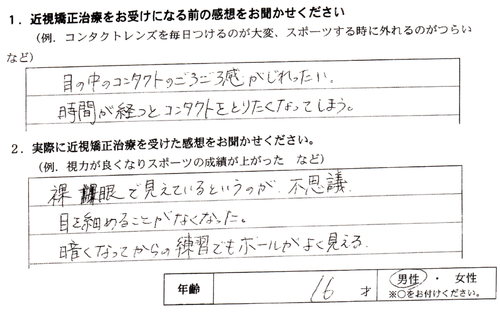 1．近視矯正治療をお受けになる前の感想をお聞かせください
（例．コンタクトレンズを毎日つけるのが大変、スポーツする時に外れるのがつらい
など）
目の中のコンタクトのごろごろ感がじれったい。
時間が経つとコンタクトをとりたくなってしまう。
2．実際に近視矯正治療を受けた感想をお聞かせください。
（例．視力が良くなりスポーツの成績が上がった　など）
裸眼で見えているというのが、不思議。
目を細めることがなくなった。
暗くなってからの練習でもボールがよく見える。
年齢　16　才　男性　・　女性
※○をお付けください。